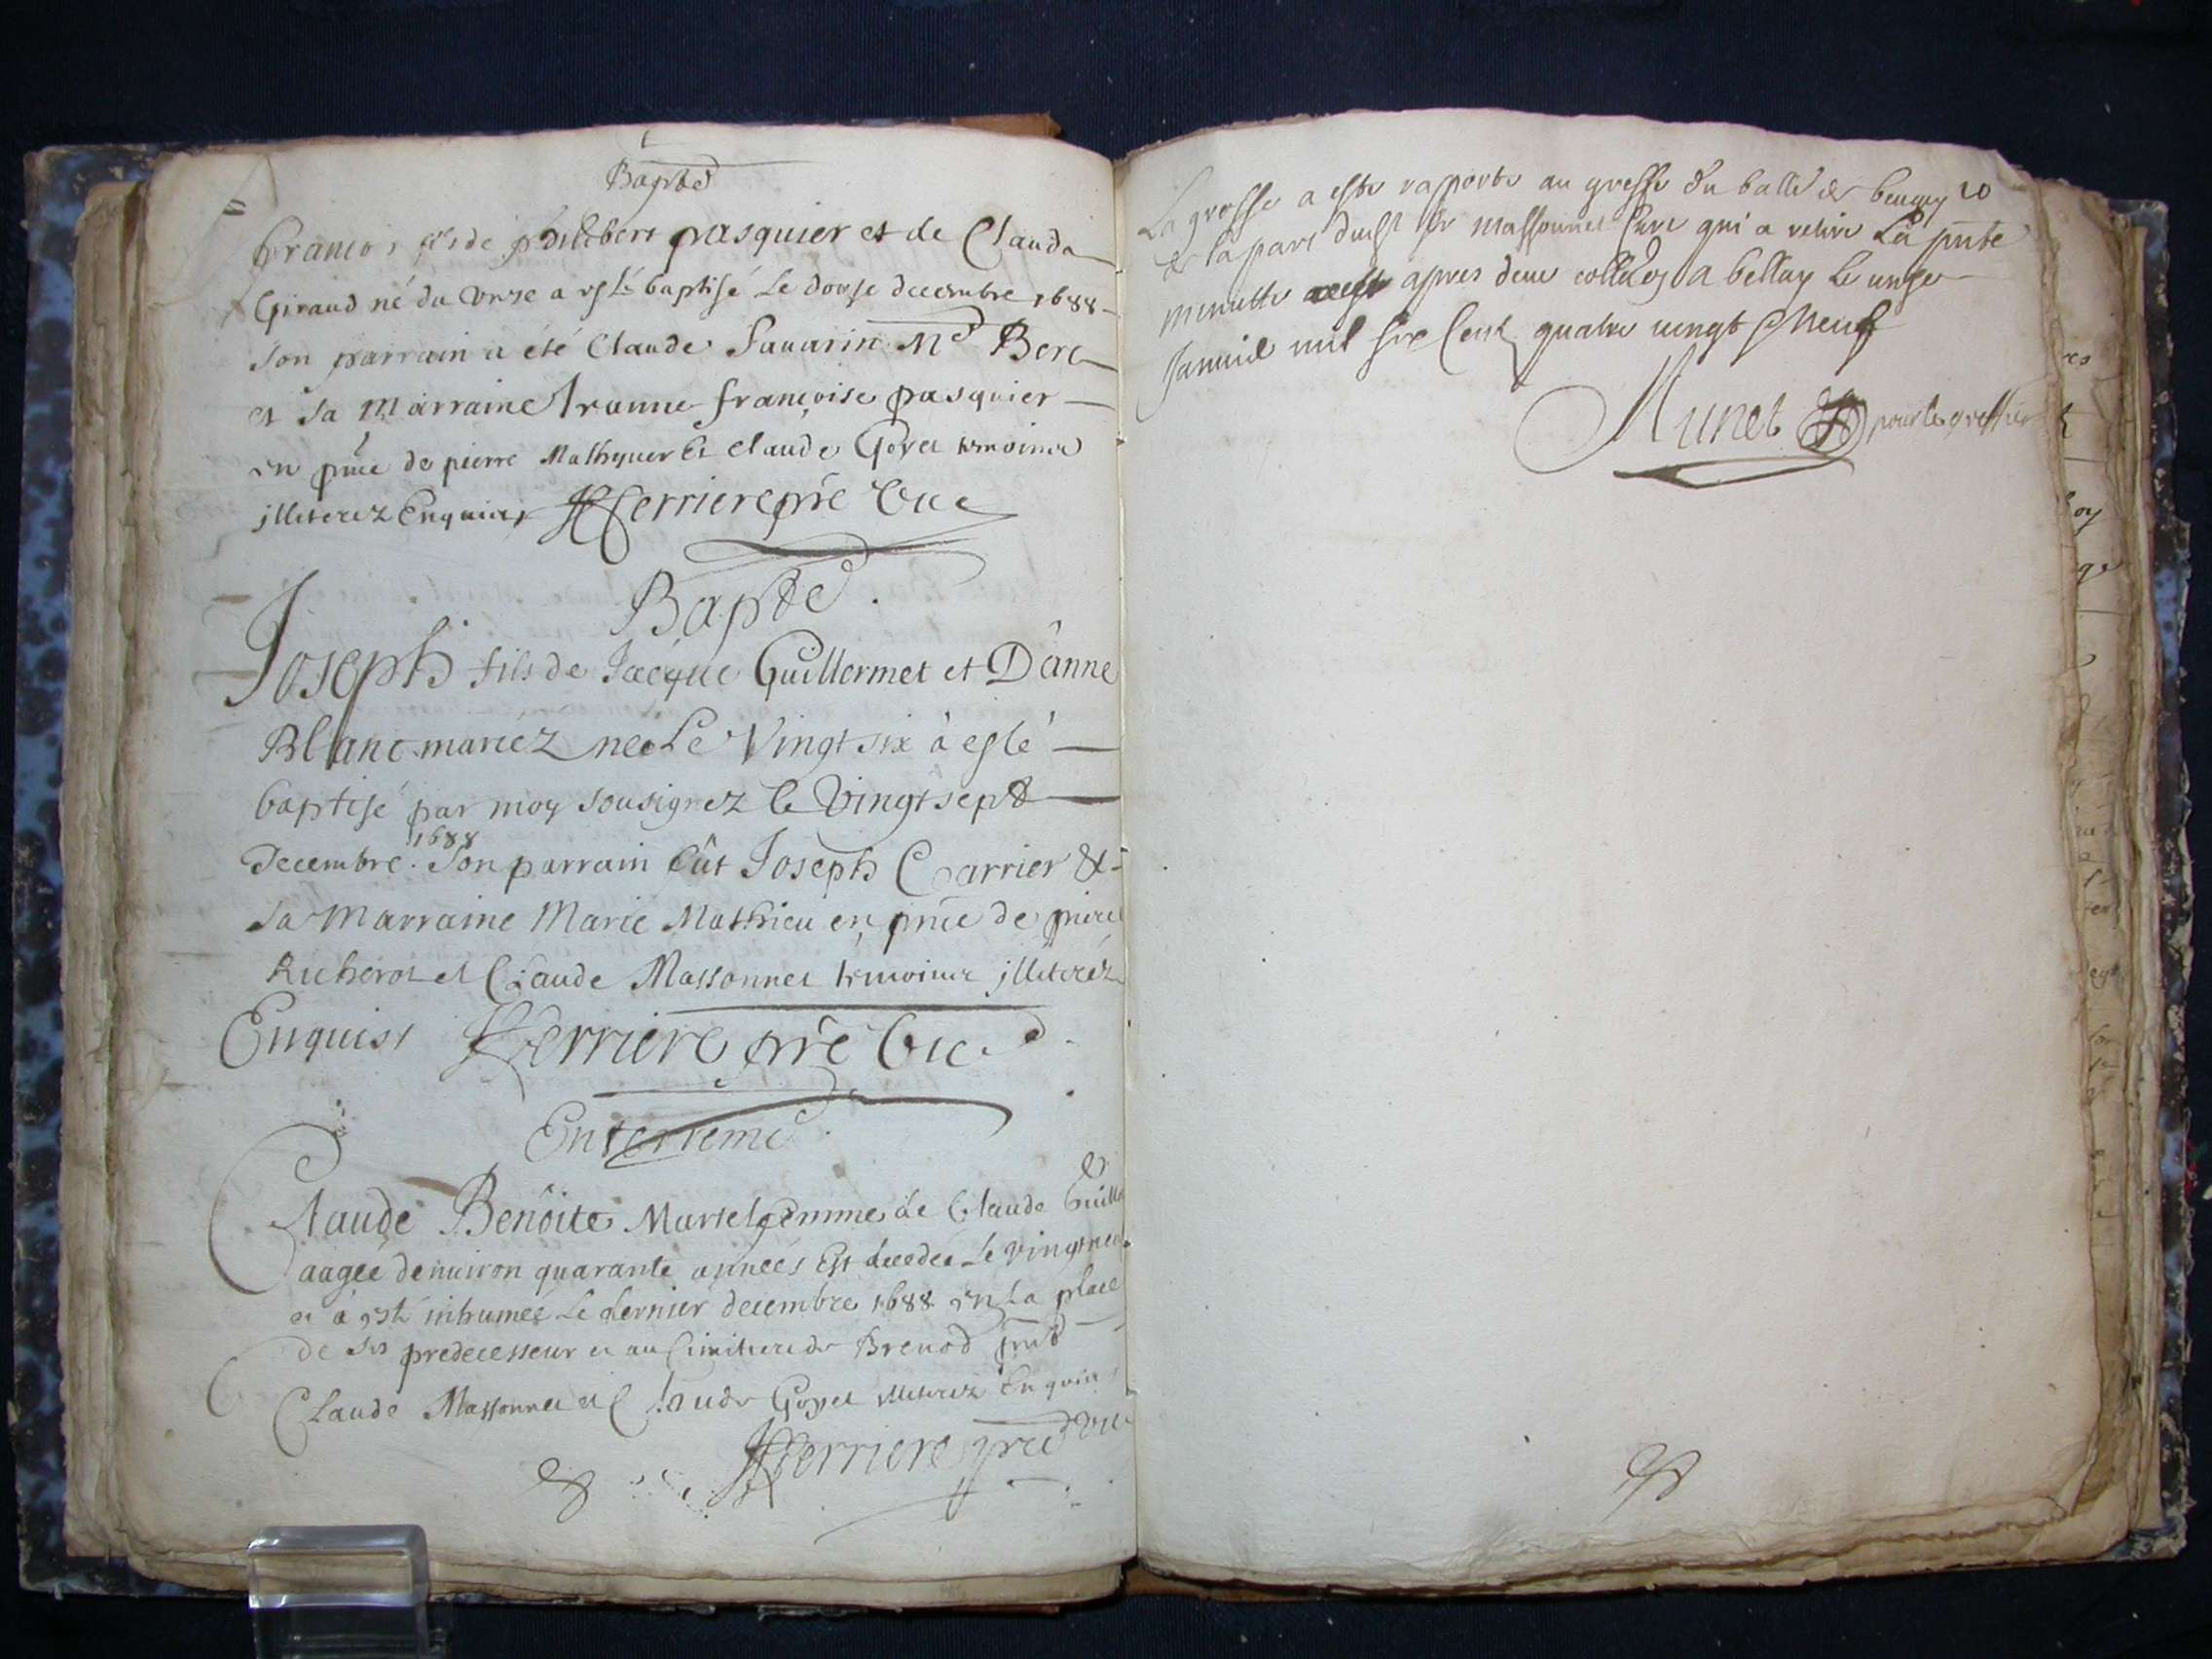 Bapte
francois fils de philibert pasquier et de Clauda
Giraud né du onze a esté baptisé Le douse decembre 1688
son parrain a été Claude Sauarin Md
et sa marraine françoise pasquier
en pnce de pierre Mathyuer Et claude Goyet temoins
illiterez Enquis Ferriere pre Vic
Bapte
Joseph fils de Jacque Guillermet et D'anne
Blanc mariez né Le Vingt six à esté
baptisé par moy sousignez le Vingt sept
1688
Decembre. Son parrain fût Joseph Carrier &
sa Marraine Marie Mathieu en pnce de piere
Richerot et Claude Massonnet temoins illiteréz
Enquis Ferriere pre Vic
Enterreme
Claude Benôite Martel femme de Claude
aagée denuiron quarante années Est decedée Le vingtneu
et à esté inhumée Le dernier decembre 1688 en La place
de ses predecesseur et au Cimitiere de Brenod pnt
Claude Massonnet et Claude Goyet illiterez Enquis
Ferriere pre vic
20
La grosse a este rapporte au greffe du balle de beugey
de la part dudit sr massonnet Cure qui a retire La pnte
minutte apres deue a bellay le unze
Januie mil six Cent quatre uingt Neuf
Munet pour le greffier